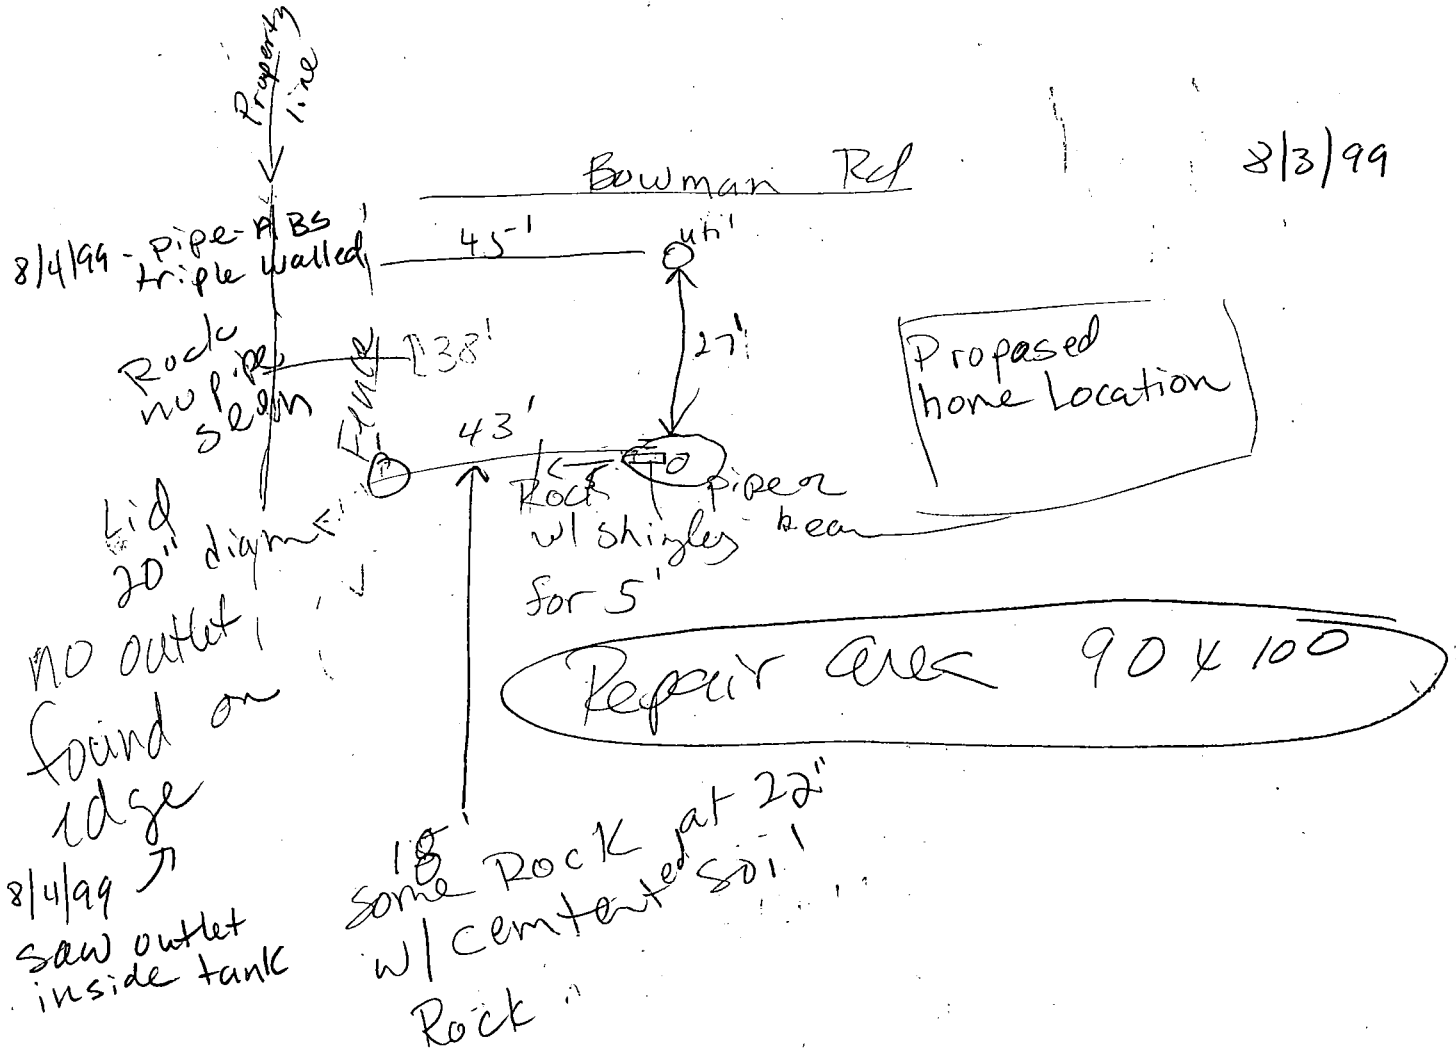 Property
line
Bowman Rd
8/3/99
8/4/99 - pipe - ABS
triple walled
45'
util
Rock
no pipe
seen
Fence
38'
27'
Propased
home Location
43'
Rock
w/ shingles
for 5'
pipe
bean
Lid
20" diam
no outlet
found on
edge
8/4/99
saw outlet
inside tank
Repair area 90 x 100
18'
some Rock at 22"
w/ cemtented soil
Rock